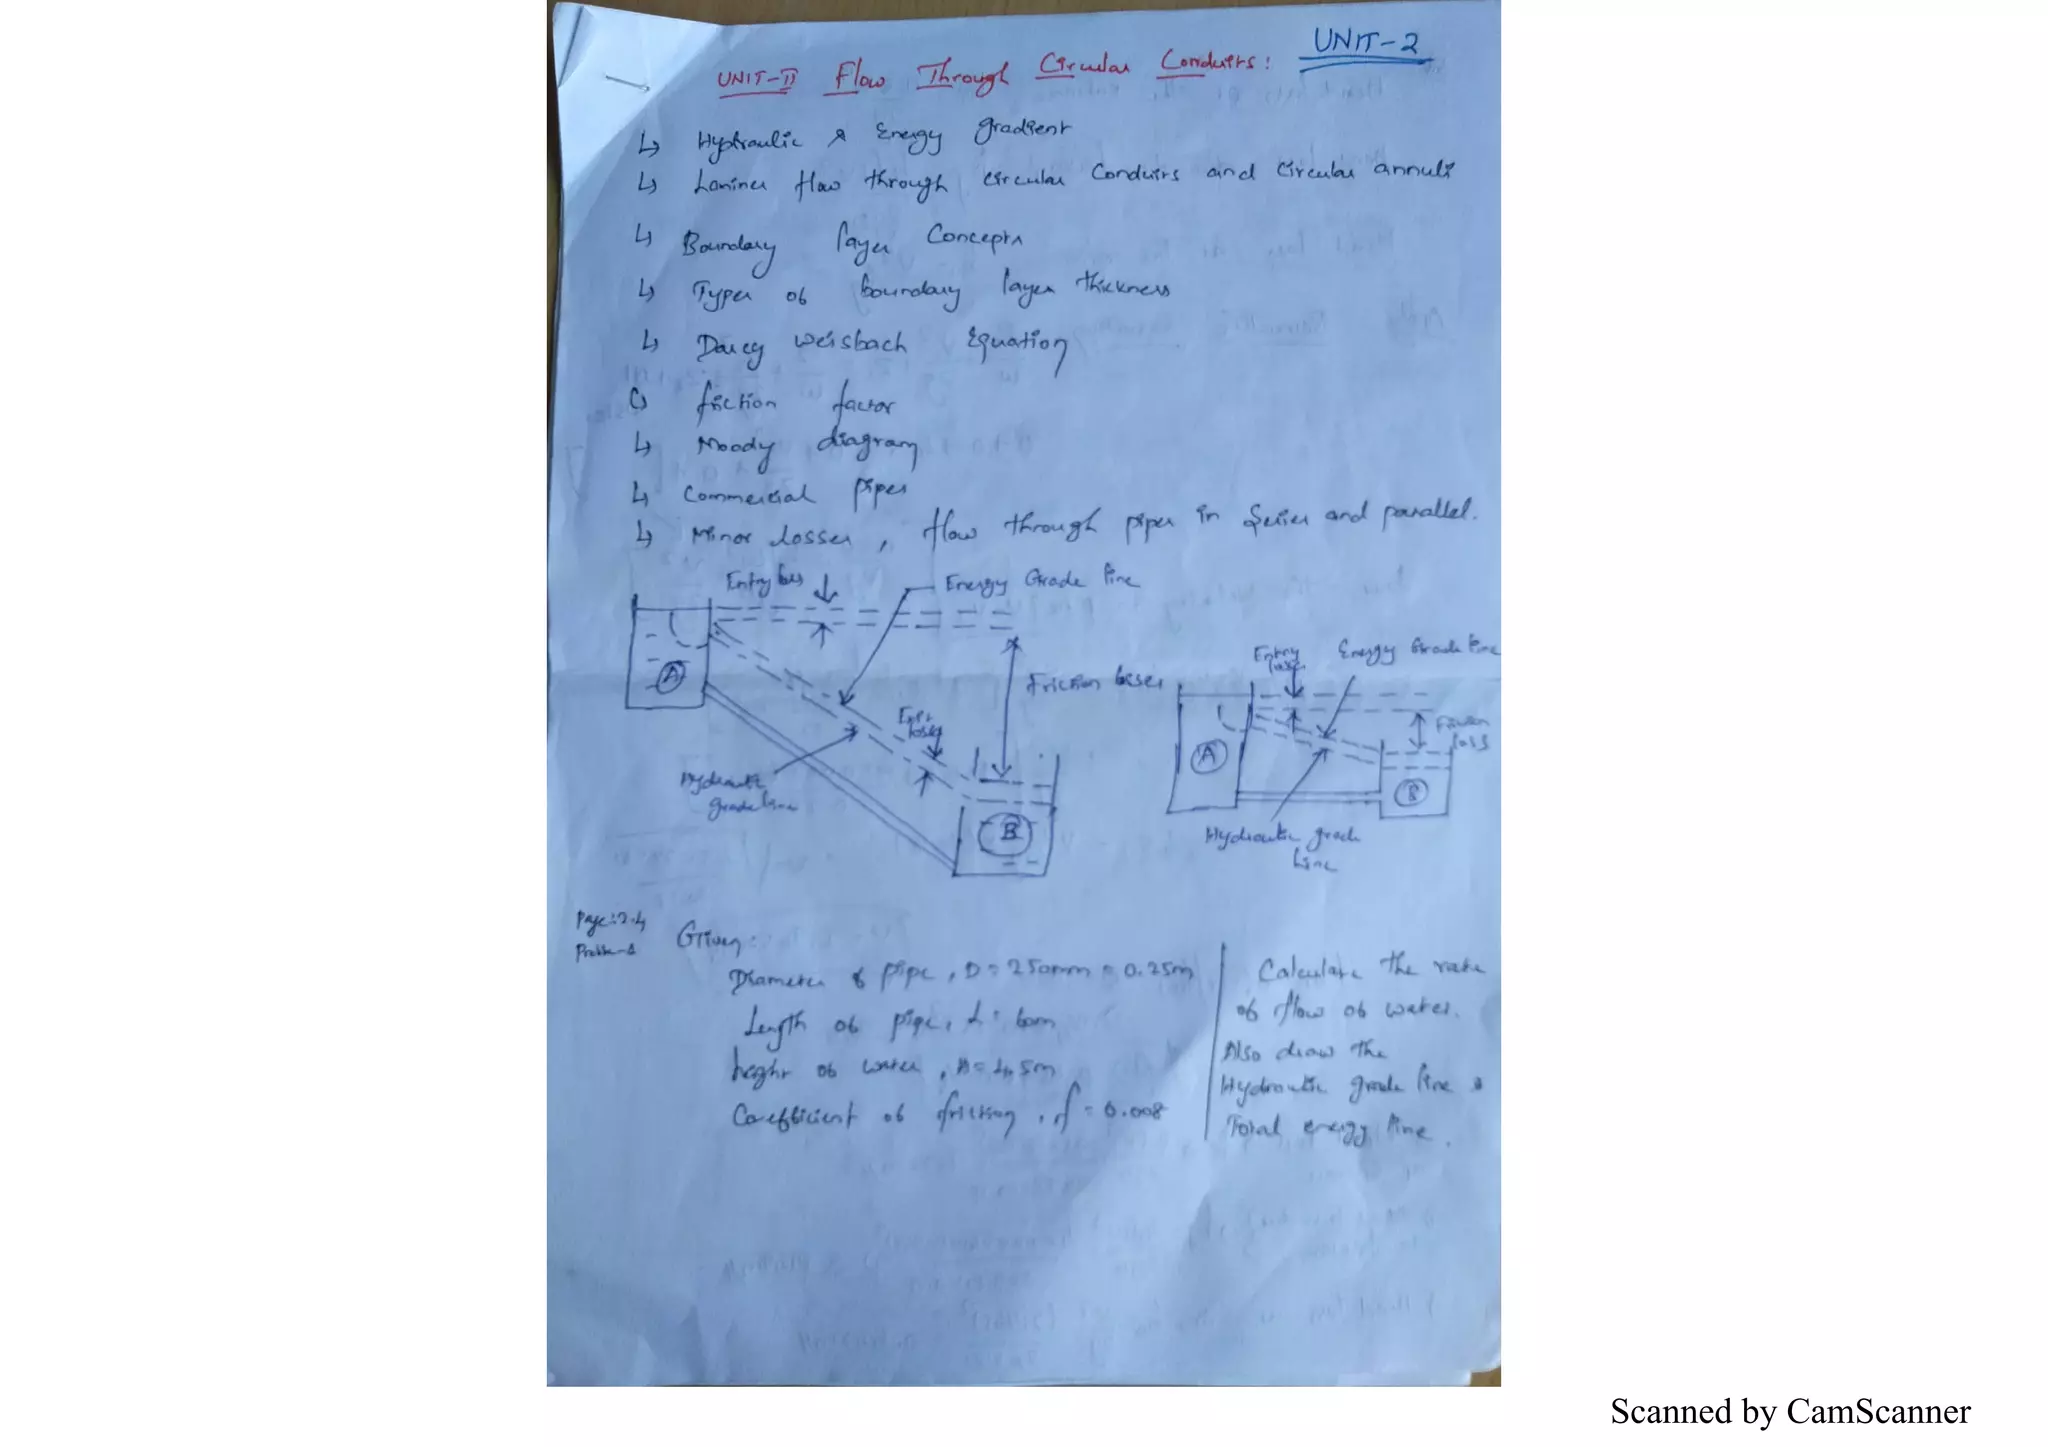 UNIT-2
UNIT-II Flow Through Circular Conduits:
↳ Hydraulic & Energy gradient
↳ Laminar flow through circular Conduits and circular annuli
↳ Boundary layer Concepts
↳ Types of boundary layer thickness
↳ Darcy weisbach Equation
↳ friction factor
↳ Moody diagram
↳ Commercial pipes
↳ Minor losses, flow through pipes in series and parallel.
Entry loss
Energy Grade line
A
Friction losses
Exit losses
Hydraulic grade line
B
Entry losses
Energy Grade line
A
Friction loss
B
Hydraulic grade line
Page: 2.4
Given:
Diameter of pipe, D = 250mm = 0.25m
Length of pipe, L = 60m
height of water, H = 4.5m
Co-efficient of friction, f = 0.008
Calculate the rate
of flow of water.
Also draw the
Hydraulic grade line &
Total energy line.
Scanned by CamScanner